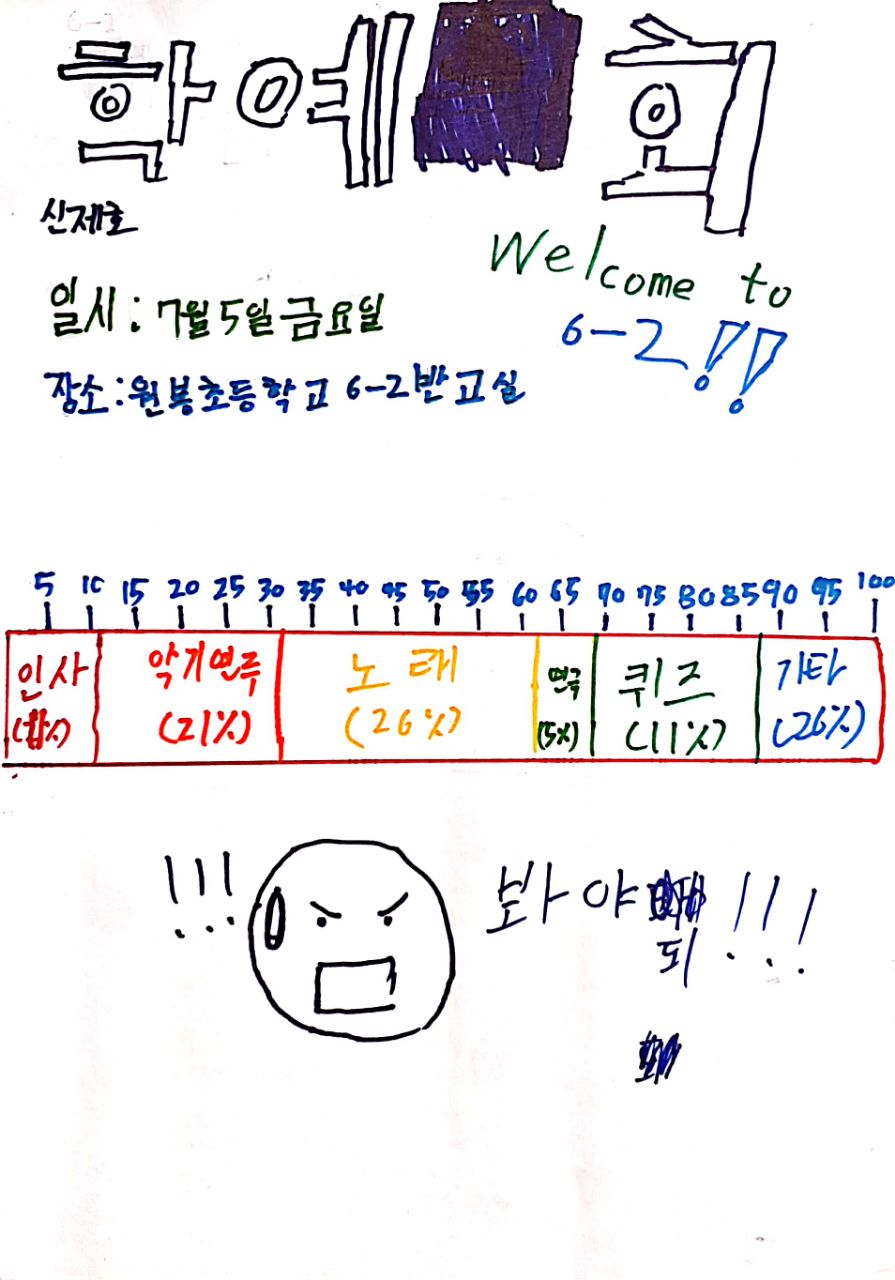 학예회
신제호
Welcome to
6-2!!
일시: 7월 5일 금요일
장소: 원봉초등학교 6-2반 교실
5 10 15 20 25 30 35 40 45 50 55 60 65 70 75 80 85 90 95 100
인사 악기연주 노래 연극 퀴즈 기타
(21%) (26%) (5%) (11%) (26%)
!!! 봐야
되!!!